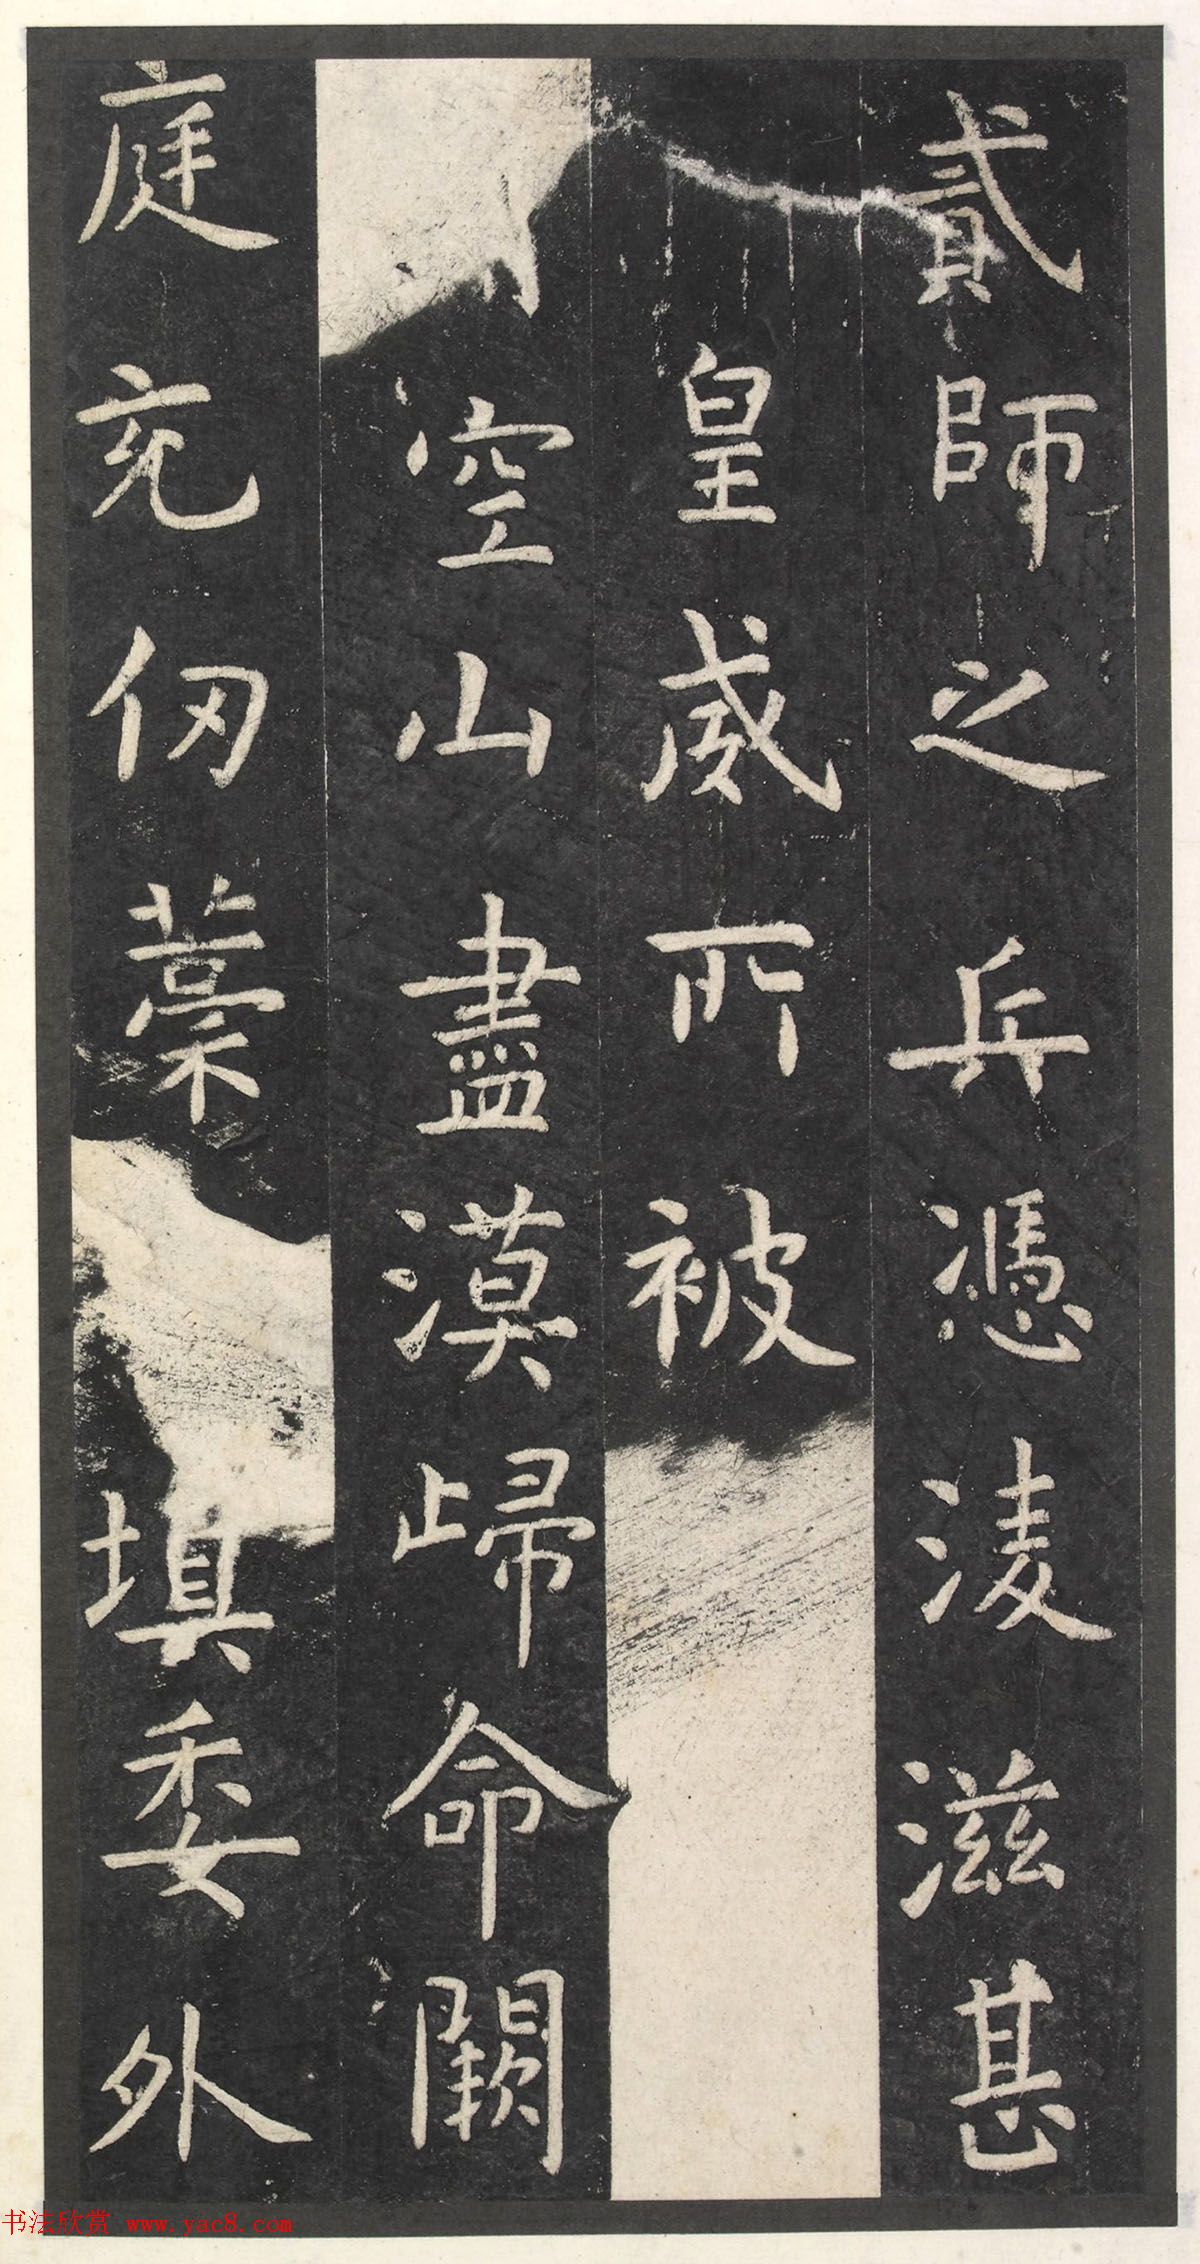 貳師之兵憑淩滋甚
皇威所被
空山盡漠歸命闕
庭充仞藳填委外
书法欣赏 www.yac8.com